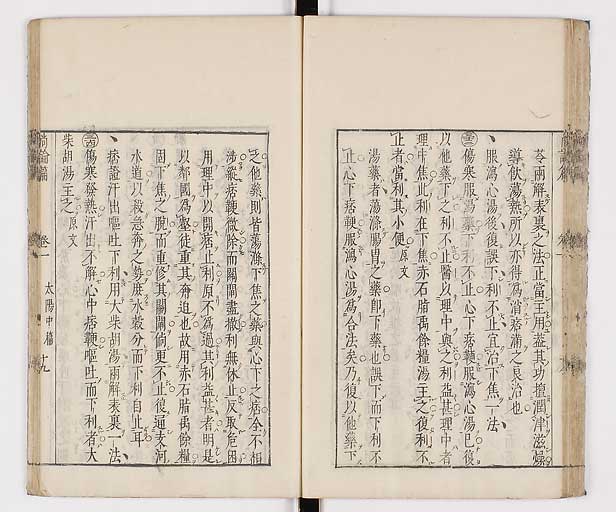 苓兩解表裏之法正當主用蓋其功擅潤津滋燥
導飮蕩熱所以亦得爲消痞滿之良治也
服瀉心湯後復誤下利不止宜治下焦一法
傷寒服湯藥下利不止心下痞鞕服瀉心湯已復
以他藥下之利不止醫以理中與之利益甚理中者
理中焦此利在下焦赤石脂禹餘糧湯主之復利不
止者當利其小便 原文
湯藥者蕩滌腸胃之藥卽下藥也誤下而下利不
止心下痞鞕服瀉心湯爲合法矣乃復以他藥下
之他藥則皆蕩滌下焦之藥與心下之痞全不相
涉縱痞鞕微除而關閘盡撤利無休止反取危困
用理中以開痞止利原不爲過其利益甚者明是
以鄰國爲壑徒重其奔迫也故用赤石脂禹餘糧
固下焦之脫而重修其關閘倘更不止復通支河
水道以殺急奔之勢庶水穀分而下利自止耳
痞證汗出嘔吐下利用大柴胡湯兩解表裏一法
傷寒發熱汗出不解心中痞鞕嘔吐而下利者大
柴胡湯主之 原文
尚論篇 卷一 太陽中篇 十九